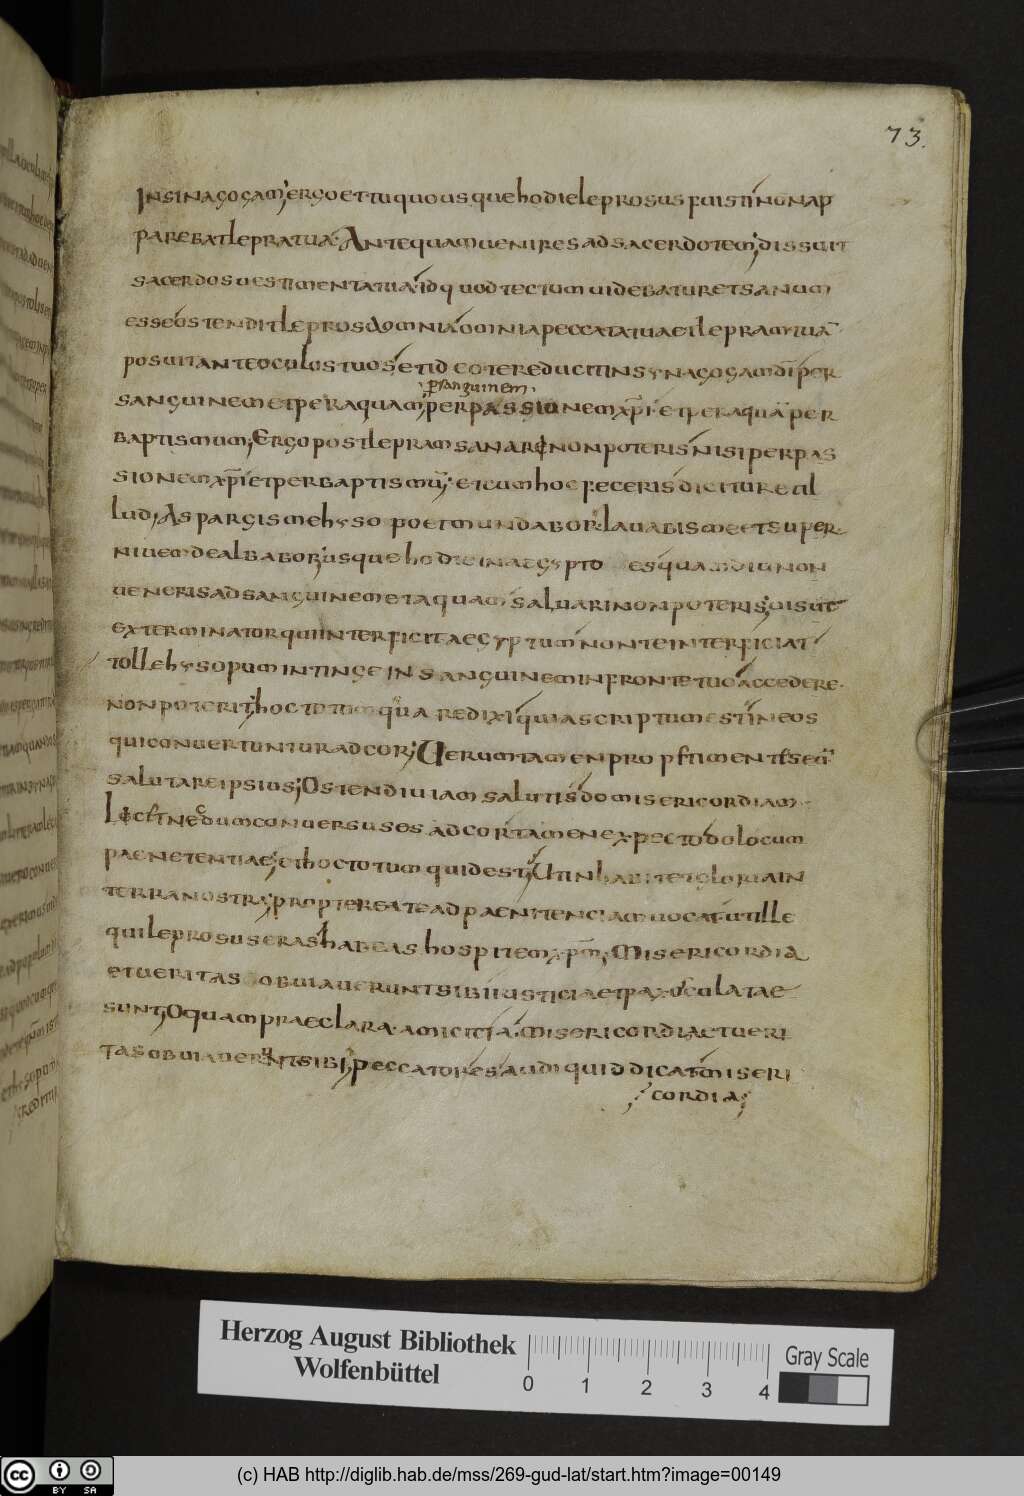 73.
in sinagogam; ergo et tu quousque hodie leprosus fuisti nūnap
parebat lepra tua. Antequam uenires ad sacerdotem; dissuit
sacerdos uestimenta tua id quod tectum uidebatur et sanum
esse ostendit leprosd omnia omnia peccata tua et lepram tuā
posuit ante oculos tuos et id cote reducit in synagogam dī per
p sanguinem.
sanguinem et per aquam; per passionem xp̄i et per aquā per
baptismum; Ergo post lepram sanare non poteris nisi per pas
sionem xp̄i et per baptismū; et cum hoc feceris dicitur et il
lud, Aspargis me hysopo et mundabor lauabis me et super
niuem dealbabor; usque hodie in aegypto es quamdiu non
ueneris ad sanguinem et aquam saluari non poteris; uis ut
exterminator qui interficit aegyptum non te interficiat
tolle hysopum intinge in sanguinem in fronte tuo accedere
non poterit; hoc totum qua re dixi quia scriptum est in eos
qui conuertuntur ad cor; Uerumtamen prope timentes eū
salutare ipsius; Ostendi uiam salutis do misericordiam.
dum conuersus es ad cor tamen expecto do locum
paenetentiae; et hoc totum quid est; Ut inhabitet gloria in
terra nostra; propterea te ad paenitenciam uocat ut ille
qui leprosus eras habeas hospitem xp̄m; Misericordia
et ueritas obuiauerunt sibi iusticia et pax osculatae
sunt; O quam praeclara amicitia. Misericordia et ueri
tas obuiauerunt sibi; peccatores audi quid dicat miseri
cordia;
Herzog August Bibliothek
Wolfenbüttel
0 1 2 3 4
Gray Scale
cc BY SA
(c) HAB http://diglib.hab.de/mss/269-gud-lat/start.htm?image=00149